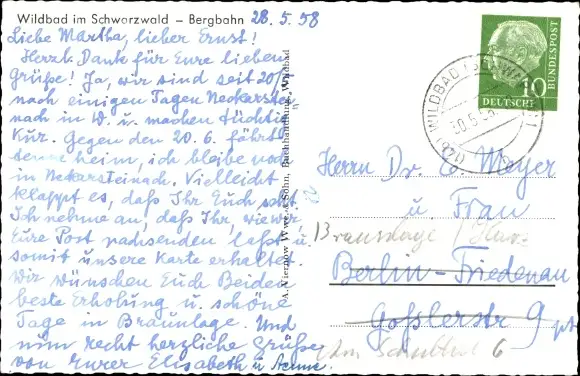 Wildbad im Schwarzwald – Bergbahn 28.5.58
Liebe Martha, lieber Ernst!
Herzl. Dank für Eure lieben
Grüße! Ja, wir sind seit 20/5
nach einigen Tagen Neckarstei
nach in W. u. machen tüchtig
Kur. Gegen den 20.6. fährt
heim, ich bleibe noch
in Neckarsteinach. Vielleicht
klappt es, daß Ihr Euch seht.
Ich nehme an, daß Ihr, wie wir
Eure Post nachsenden laßt u.
somit unsere Karte erhaltet.
Wir wünschen Euch Beiden
beste Erholung u. schöne
Tage in Braunlage. Und
nun recht herzliche Grüße
von Eurer Elisabeth u.
A. Viernow Wwe. & Sohn, Buchhandlung, Wildbad
DEUTSCHE BUNDESPOST
10
WILDBAD (SCHWARZWALD)
30.5.58
Herrn Dr. E. Meyer
u Frau
Braunlage / Harz
Berlin-Friedenau
Goßlerstr 9 pt
6